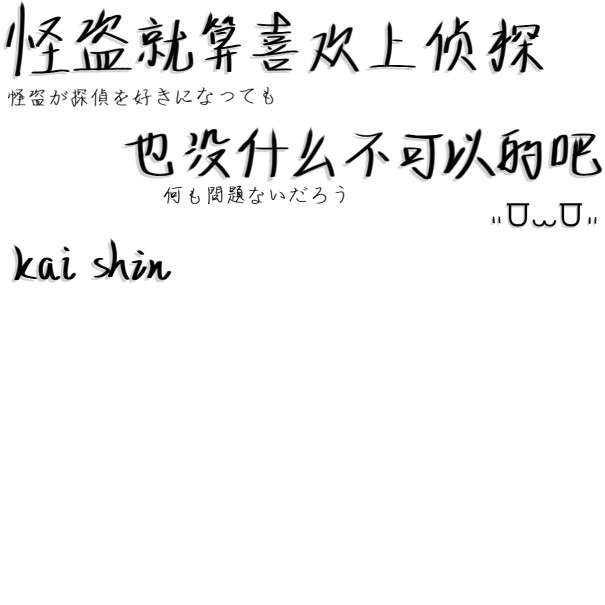 怪盗就算喜欢上侦探
怪盗が探偵を好きになっても
也没什么不可以的吧
何も問題ないだろう
"ㅂωㅂ"
kai shin